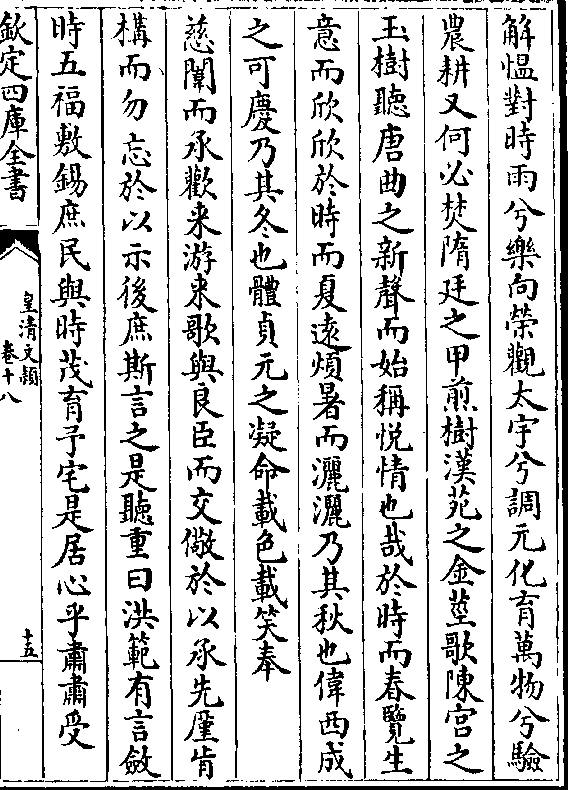 解愠對時雨兮樂向榮觀太宇兮調元化育萬物兮驗
農耕又何必焚隋廷之甲煎樹漢苑之金莖歌陳宫之
玉樹聽唐曲之新聲而始稱悦情也哉於時而春覽生
意而欣欣於時而夏逺煩暑而灑灑乃其秋也偉西成
之可慶乃其冬也體貞元之凝命載色載笑奉
慈闈而承歡来游来歌與良臣而交儆於以承先厪肯
構而勿忘於以示後庶斯言之是聽重曰洪範有言斂
時五福敷錫庶民與時茂育予宅是居心乎肅肅受
欽定四庫全書
皇清文穎
卷十八
十五